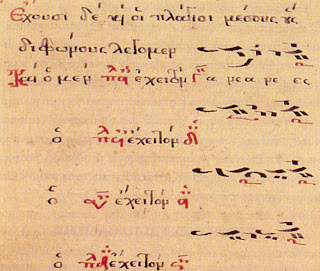 Ἔχουσι δέ κὶ οἱ πλάγιοι μέσους οὓς
διφώνους λέγομεν
Καὶ ὁ μέν πλ ἔχει τὸν α νεα νε ες
ὁ πλ ἔχει τὸν
ὁ ἔχει τὸν
ὁ πλ ἔχει τὸν